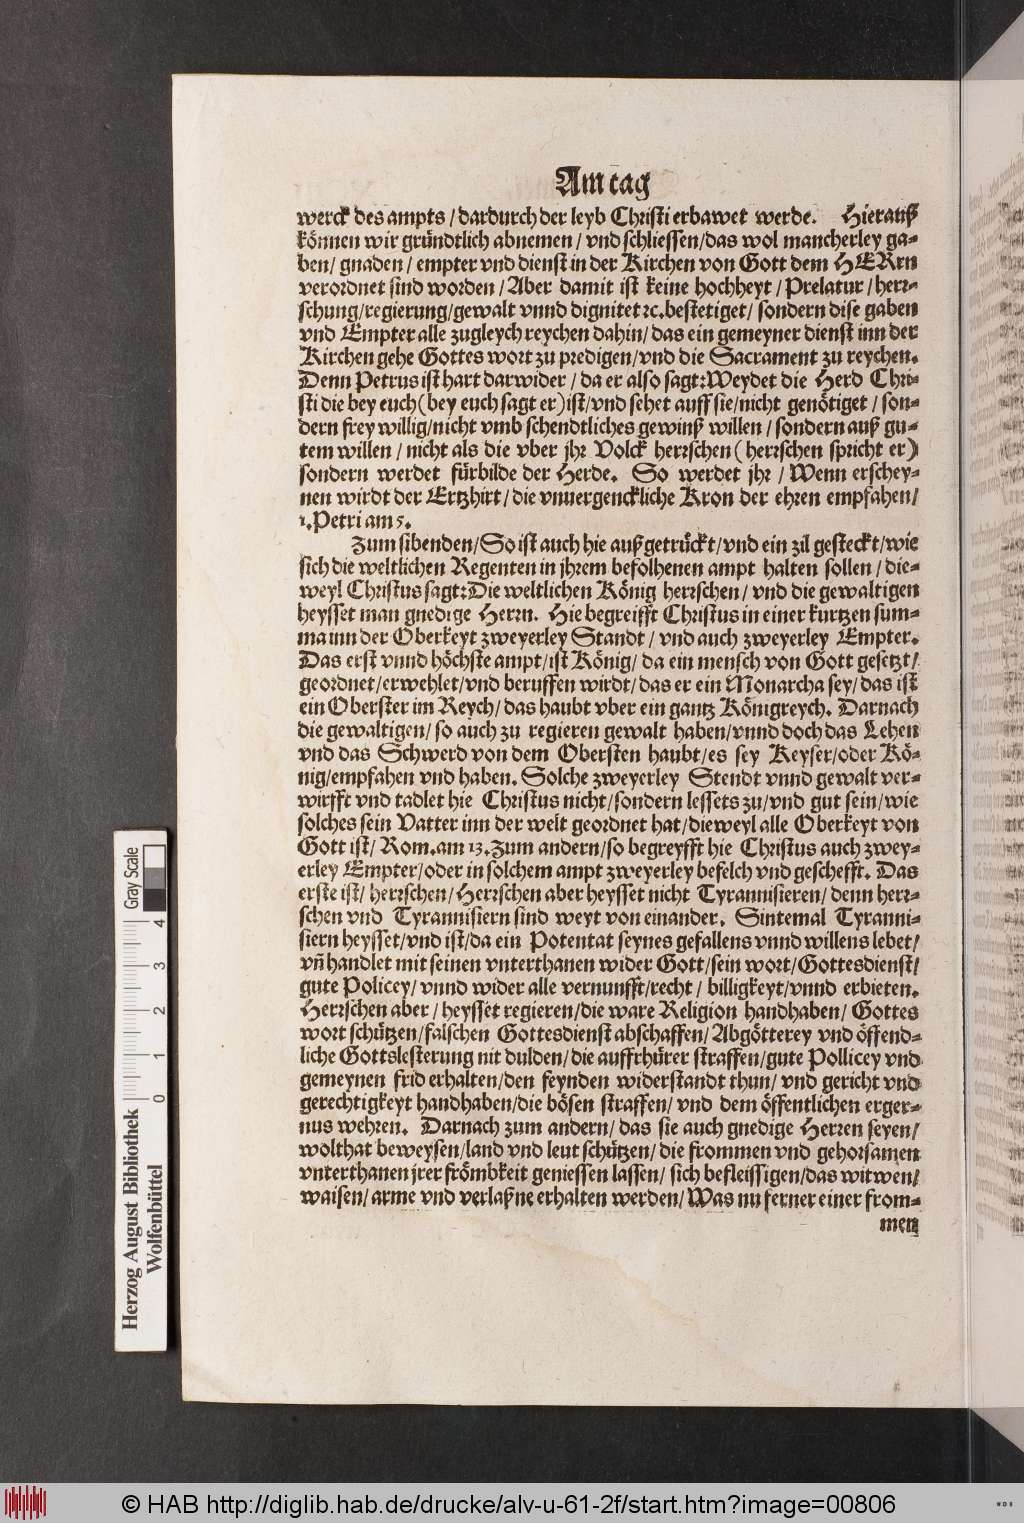 Am tag
werck des ampts / dardurch der leyb Christi erbawet werde. Hierauß
können wir gründtlich abnemen / vnd schliessen/das wol mancherley ga-
ben/ gnaden / empter vnd dienst in der Kirchen von Gott dem HERrn
verordnet sind worden / Aber damit ist keine hochheyt / Prelatur / herr-
schung/regierung/gewalt vnnd dignitet ꝛc.bestetiget/ sondern dise gaben
vnd Empter alle zugleych reychen dahin/ das ein gemeyner dienst inn der
Kirchen gehe Gottes wort zu predigen/vnd die Sacrament zu reychen.
Denn Petrus ist hart darwider / da er also sagt:Weydet die Herd Chri-
sti die bey euch(bey euch sagt er)ist/vnd sehet auff sie/nicht genötiget / son-
dern frey willig/nicht vmb schendtliches gewinß willen / sondern auß gu-
tem willen / nicht als die vber jhr Volck herrschen ( herrschen spricht er)
sondern werdet fürbilde der Herde. So werdet jhr / Wenn erschey-
nen wirdt der Ertzhirt/ die vnuergenckliche Kron der ehren empfahen/
1.Petri am 5.
Zum sibenden/So ist auch hie auß getrückt/vnd ein zil gesteckt/wie
sich die weltlichen Regenten in jhrem befolhenen ampt halten sollen / die-
weyl Christus sagt:Die weltlichen König herrschen/ vnd die gewaltigen
heysset man gnedige Herrn. Hie begreifft Christus in einer kurtzen sum-
ma inn der Oberkeyt zweyerley Standt / vnd auch zweyerley Empter.
Das erst vnnd höchste ampt/ist König/ da ein mensch von Gott gesetzt/
geordnet/erwehlet/vnd beruffen wirdt/das er ein Monarcha sey/das ist
ein Oberster im Reych/das haubt vber ein gantz Königreych. Darnach
die gewaltigen/ so auch zu regieren gewalt haben/vnnd doch das Lehen
vnd das Schwerd von dem Obersten haubt/es sey Keyser/oder Kö-
nig/empfahen vnd haben. Solche zweyerley Stendt vnnd gewalt ver-
wirfft vnd tadlet hie Christus nicht/sondern lessets zu/vnd gut sein/wie
solches sein Vatter inn der welt geordnet hat/dieweyl alle Oberkeyt von
Gott ist/ Rom.am 13.Zum andern/so begreyfft hie Christus auch zwey-
erley Empter/oder in solchem ampt zweyerley befelch vnd geschefft. Das
erste ist/ herrschen/Herrschen aber heysset nicht Tyrannisieren/ denn herr-
schen vnd Tyrannisiern sind weyt von einander. Sintemal Tyranni-
siern heysset/vnd ist/da ein Potentat seynes gefallens vnnd willens lebet/
vñ handlet mit seinen vnterthanen wider Gott/sein wort/Gottesdienst/
gute Policey/ vnnd wider alle vernunfft/recht / billigkeyt/vnnd erbieten.
Herrschen aber / heysset regieren/die ware Religion handhaben/ Gottes
wort schützen/falschen Gottesdienst abschaffen/Abgötterey vnd öffend-
liche Gottslesterung nit dulden/die auffrhürer straffen/gute Pollicey vnd
gemeynen frid erhalten/den feynden widerstandt thun/ vnd gericht vnd
gerechtigkeyt handhaben/die bösen straffen/ vnd dem öffentlichen erger-
nus wehren. Darnach zum andern/ das sie auch gnedige Herren seyen/
wolthat beweysen/land vnd leut schützen/ die frommen vnd gehorsamen
vnterthanen jrer frömbkeit geniessen lassen/ sich befleissigen/das witwen/
waisen/ arme vnd verlaßne erhalten werden/Was nu ferner einer from-
men
Gray Scale
4
3
2
1
0
Herzog August Bibliothek
Wolfenbüttel
© HAB http://diglib.hab.de/drucke/alv-u-61-2f/start.htm?image=00806